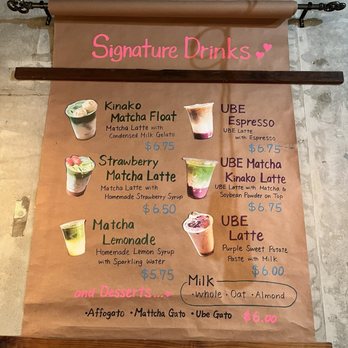 Signature Drinks
Kinako
Matcha Float
Matcha Latte with
Condensed Milk Gelato
$6.75
UBE
Espresso
UBE Latte
with Espresso
$6.75
Strawberry
Matcha Latte
Matcha Latte with
Homemade Strawberry Syrup
$6.50
UBE Matcha
Kinako Latte
UBE Latte with Matcha &
Soybean Powder on Top
$6.75
Matcha
Lemonade
Homemade Lemon Syrup
with Sparkling Water
$5.75
UBE
Latte
Purple Sweet Potato
Paste with Milk
$6.00
Milk
• Whole • Oat • Almond
and Desserts...
• Affogato • Mattcha Gato • Ube Gato $6.00